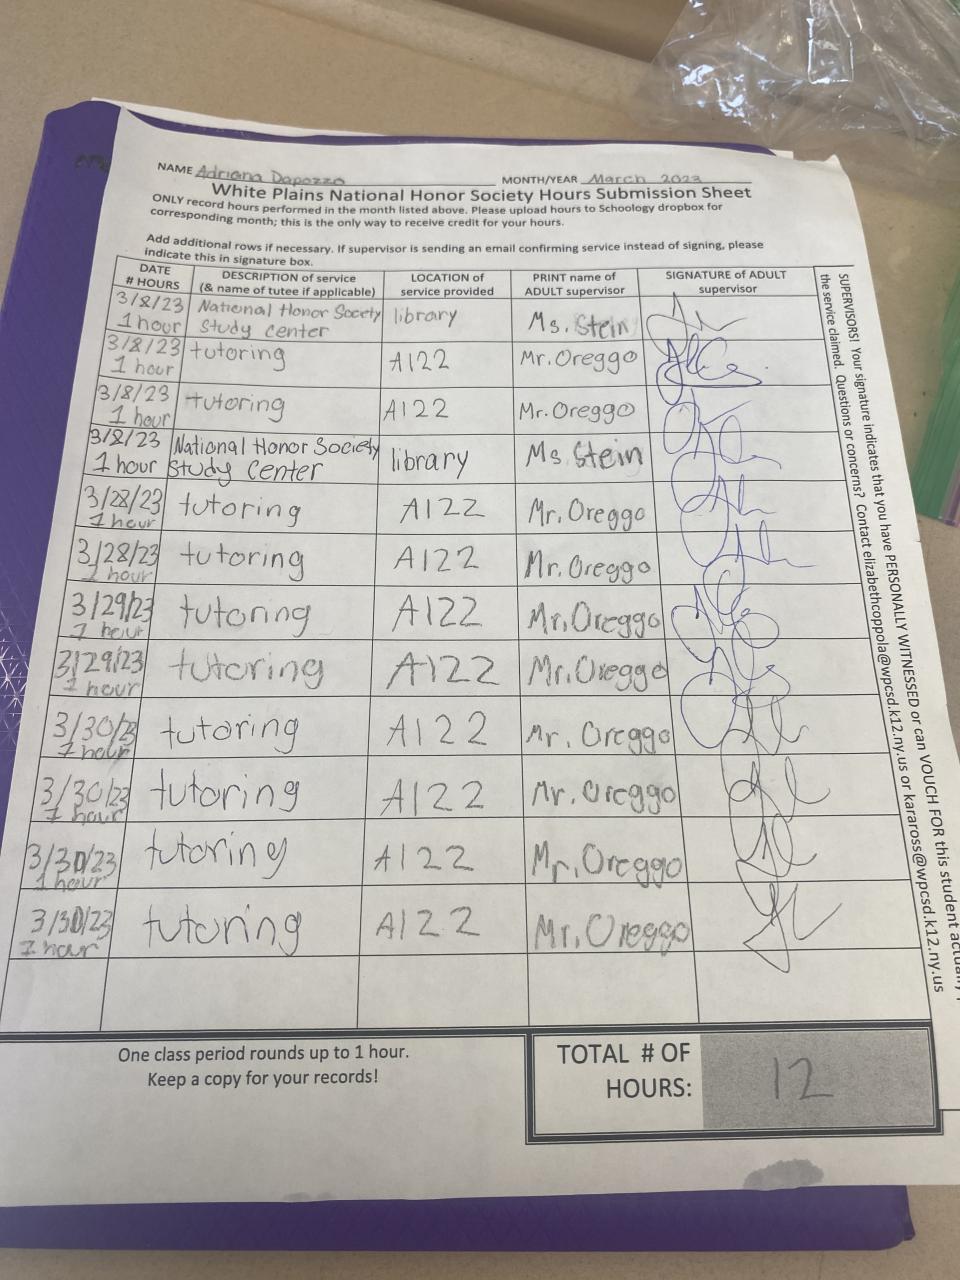 NAME Adriana Dapozzo MONTH/YEAR March 2023
White Plains National Honor Society Hours Submission Sheet
ONLY record hours performed in the month listed above. Please upload hours to Schoology dropbox for
corresponding month; this is the only way to receive credit for your hours.
Add additional rows if necessary. If supervisor is sending an email confirming service instead of signing, please
indicate this in signature box.
DATE
# HOURS
DESCRIPTION of service
(& name of tutee if applicable)
LOCATION of
service provided
PRINT name of
ADULT supervisor
SIGNATURE of ADULT
supervisor
3/8/23 National Honor Society library Ms. Stein
1 hour Study center
3/8/23 tutoring A122 Mr. Oreggo
1 hour
3/8/23 tutoring A122 Mr. Oreggo
1 hour
3/8/23 National Honor Society library Ms. Stein
1 hour Study Center
3/28/23 tutoring A122 Mr. Oreggo
1 hour
3/28/23 tutoring A122 Mr. Oreggo
1 hour
3/29/23 tutoring A122 Mr. Oreggo
1 hour
3/29/23 tutoring A122 Mr. Oreggo
1 hour
3/30/23 tutoring A122 Mr. Oreggo
1 hour
3/30/23 tutoring A122 Mr. Oreggo
1 hour
3/30/23 tutoring A122 Mr. Oreggo
1 hour
3/30/23 tutoring A122 Mr. Oreggo
1 hour
SUPERVISORS! Your signature indicates that you have PERSONALLY WITNESSED or can VOUCH FOR this student actually
the service claimed. Questions or concerns? Contact elizabethcoppola@wpcsd.k12.ny.us or karaross@wpcsd.k12.ny.us
One class period rounds up to 1 hour.
Keep a copy for your records!
TOTAL # OF
HOURS:
12